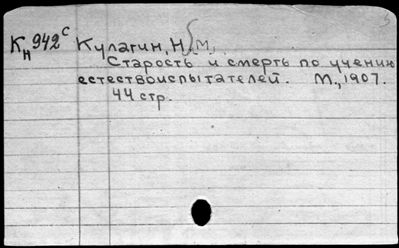 Кн 942с Кулагин, Н. М.,
Старость и смерть по учению
естествоиспытателей. М., 1907.
44 стр.